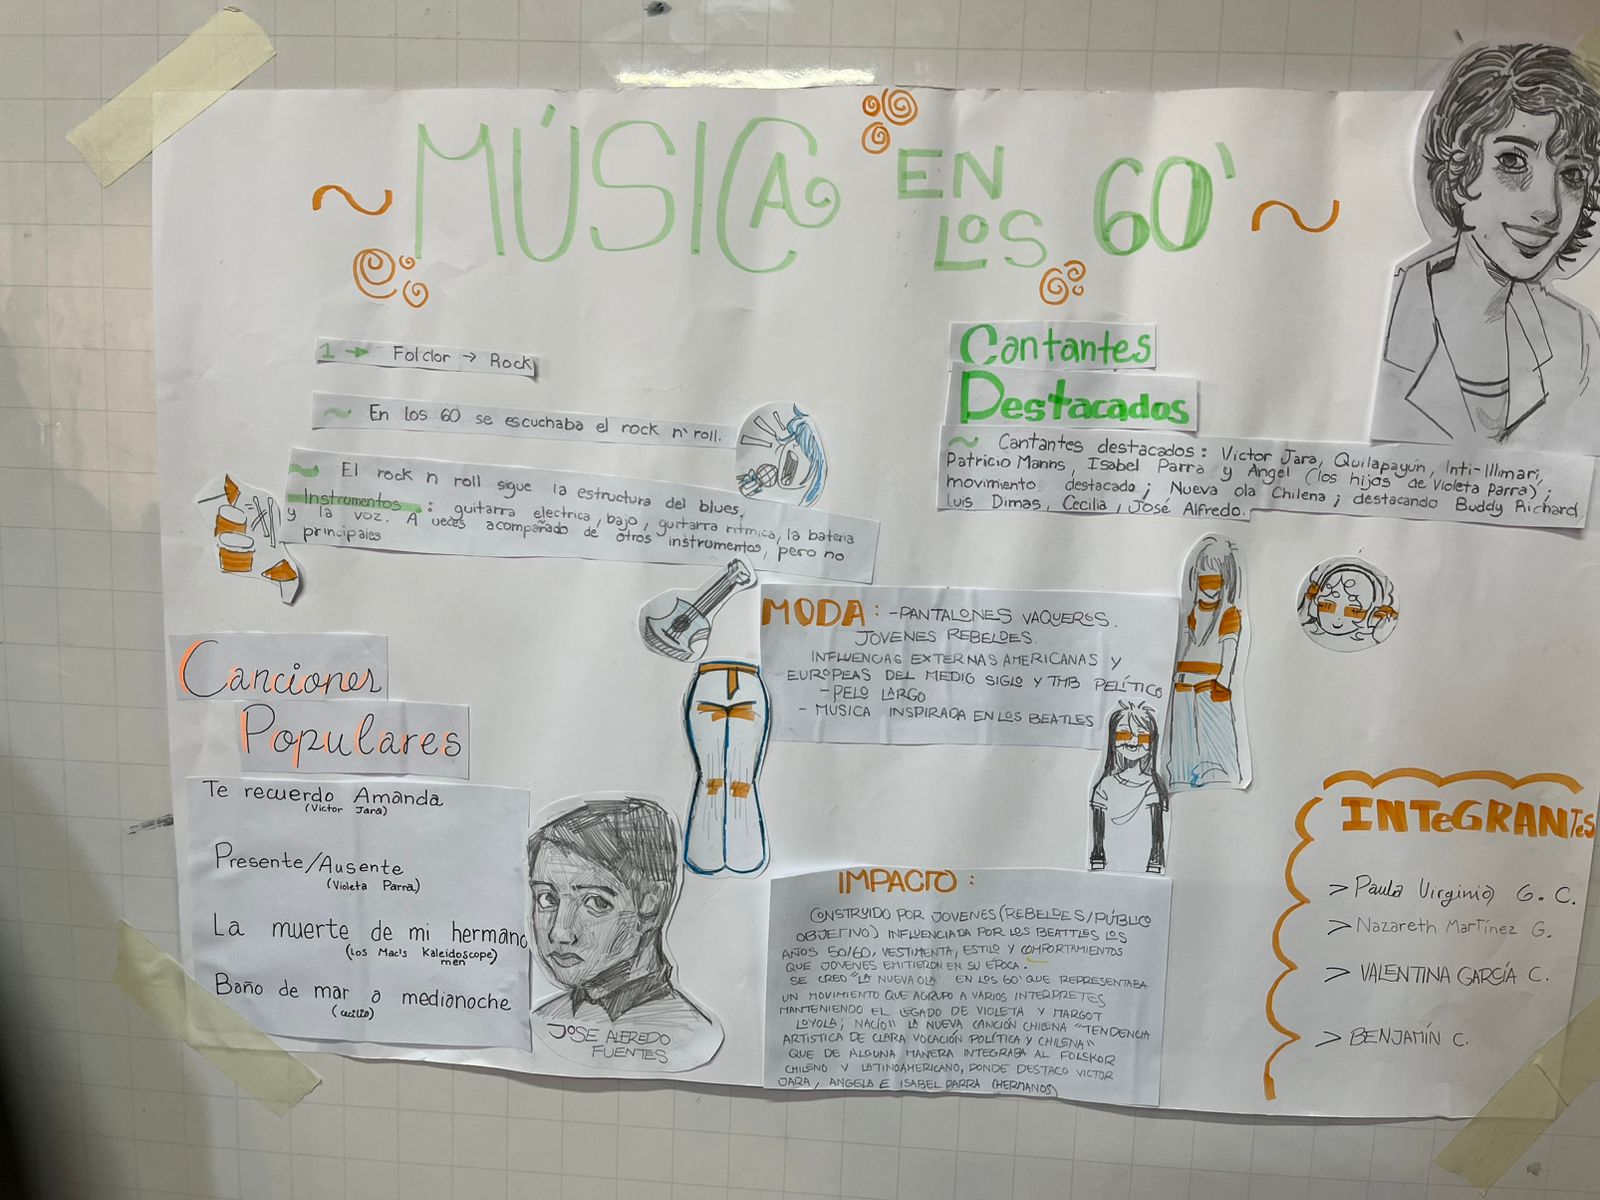 ~ MÚSICA EN LOS 60' ~
1 → Folclor → Rock
~ En los 60 se escuchaba el rock n' roll.
~ El rock n roll sigue la estructura del blues.
Instrumentos : guitarra electrica, bajo, guitarra ritmica, la bateria
y la voz. A veces acompañado de otros instrumentos, pero no
principales
Cantantes
Destacados
~ Cantantes destacados: Victor Jara, Quilapayún, Inti-Illimari,
Patricio Manns, Isabel Parra y Angel (los hijos de Violeta Parra);
movimiento destacado; Nueva ola Chilena; destacando Buddy Richard,
Luis Dimas, Cecilia, José Alfredo.
MODA: -PANTALONES VAQUEROS.
JOVENES REBELDES.
INFLUENCIAS EXTERNAS AMERICANAS Y
EUROPEAS DEL MEDIO SIGLO Y TMB PELÍTICO
-PELO LARGO
- MUSICA INSPIRADA EN LOS BEATLES
Canciones
Populares
Te recuerdo Amanda
(Victor Jara)
Presente/Ausente
(Violeta Parra)
La muerte de mi hermano
(Los Mac's Kaleidoscope)
men
Baño de mar a medianoche
(cecilia)
JOSE ALFREDO
FUENTES
IMPACTO :
CONSTRUIDO POR JOVENES (REBELDES/PÚBLICO
OBJETIVO) INFLUENCIADA POR LOS BEATTLES LOS
AÑOS 50/60, VESTIMENTA, ESTILO Y COMPORTAMIENTOS
QUE JOVENES EMITIERON EN SU ÉPOCA.
SE CREO "LA NUEVA OLA" EN LOS 60' QUE REPRESENTABA
UN MOVIMIENTO QUE AGRUPO A VARIOS INTERPRETES
MANTENIENDO EL LEGADO DE VIOLETA Y MARGOT
LOYOLA; NACÍO" LA NUEVA CANCIÓN CHILENA "TENDENCIA
ARTISTICA DE CLARA VOCACIÓN POLÍTICA Y CHILENA"
QUE DE ALGUNA MANERA INTEGRABA AL FOLSKOR
CHILENO Y LATINOAMERICANO, DONDE DESTACO VICTOR
JARA, ANGELA E ISABEL PARRA (HERMANOS)
INTEGRANTES
> Paula Virginia G. C.
> Nazareth Martínez G.
> VALENTINA GARCÍA C.
> BENJAMÍN C.